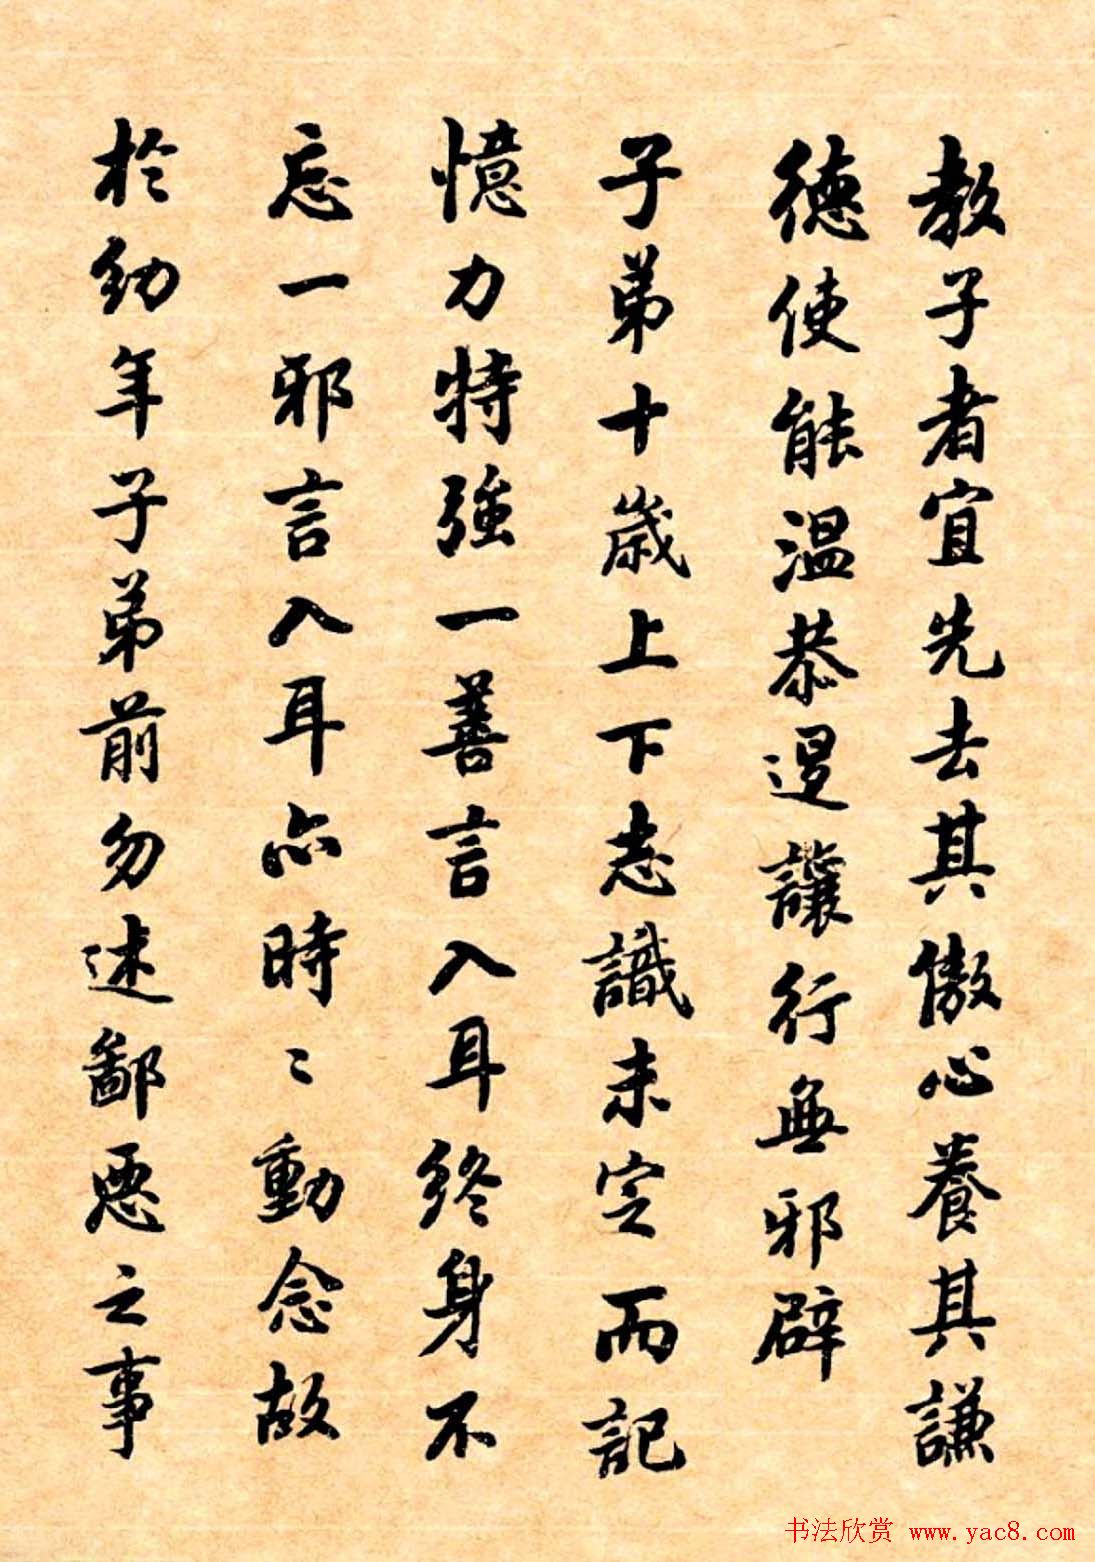 教子者宜先去其傲心養其謙
德使能溫恭退讓行無邪辟
子弟十歲上下志識未定而記
憶力特強一善言入耳終身不
忘一邪言入耳亦時〻動念故
於幼年子弟前勿述鄙惡之事
书法欣赏 www.yac8.com